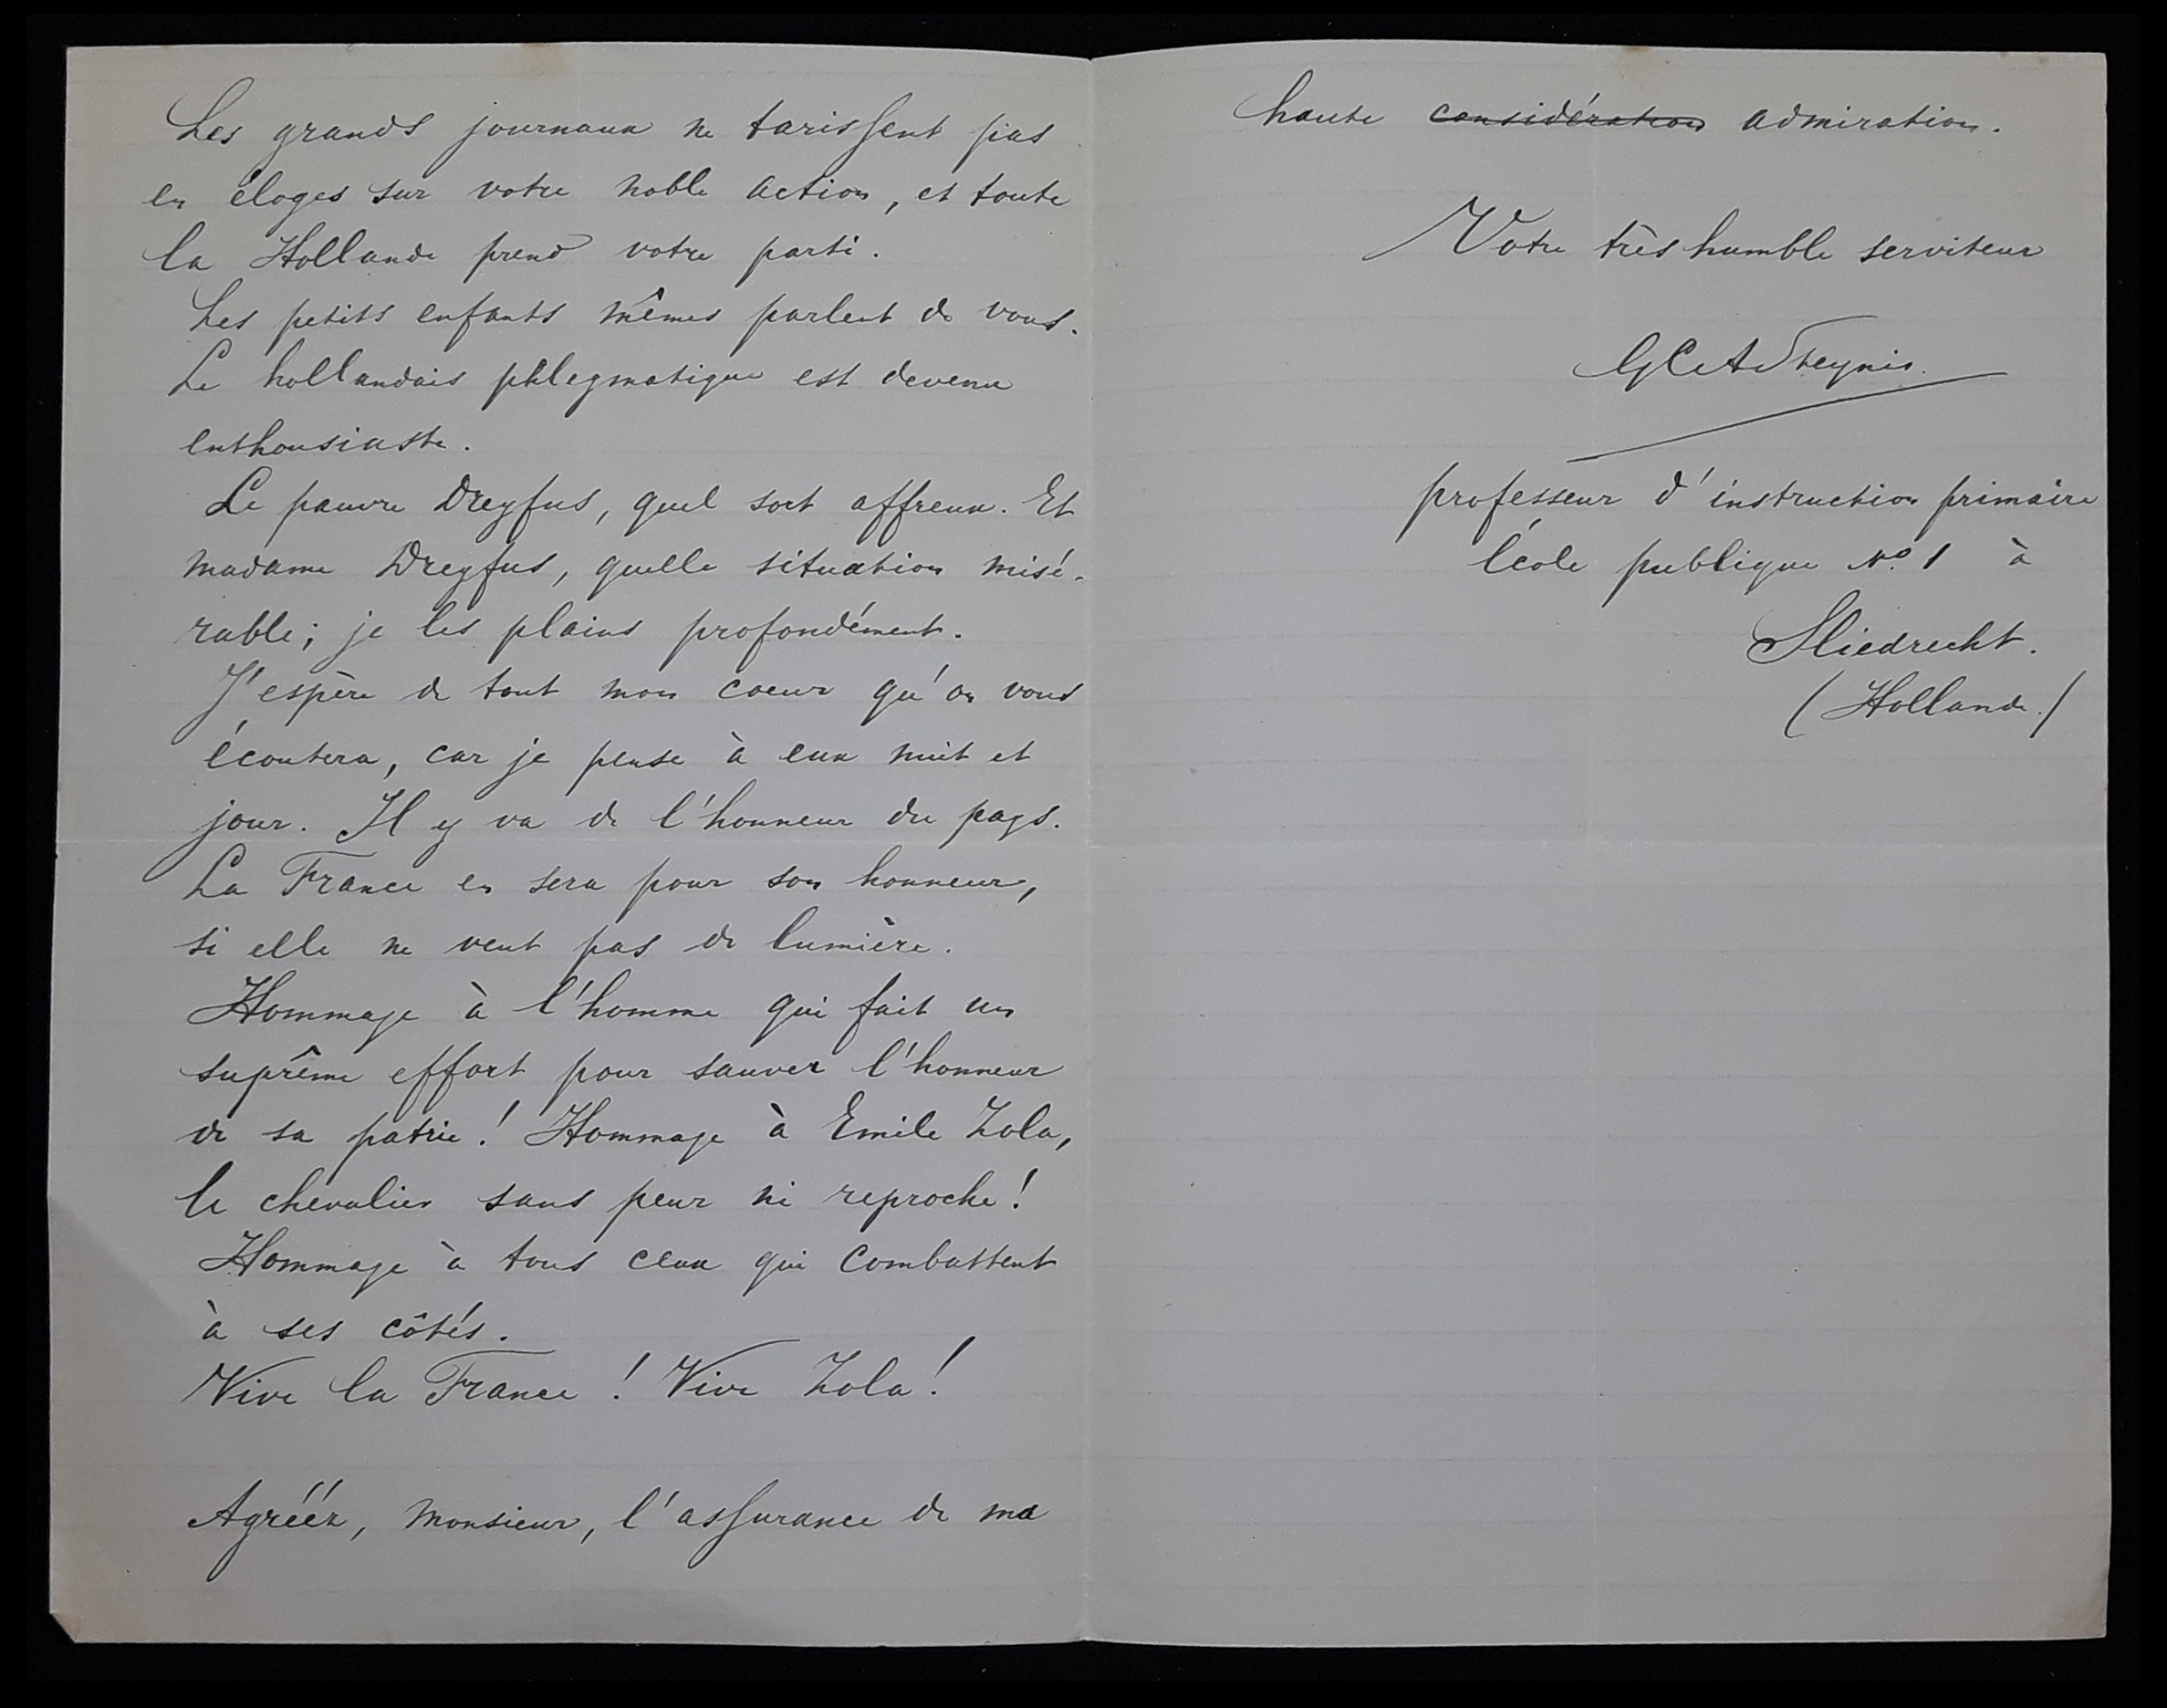 Les grands journaux ne tarissent pas
en éloges sur votre noble action, et toute
la Hollande prend votre parti.
Les petits enfants mêmes parlent de vous.
Le hollandais phlegmatique est devenu
enthousiaste.
Le pauvre Dreyfus, quel sort affreux. Et
madame Dreyfus, quelle situation misé-
rable; je les plains profondément.
J'espère de tout mon coeur qu'on vous
écoutera, car je pense à eux nuit et
jour. Il y va de l'honneur du pays.
La France en sera pour son honneur,
si elle ne veut pas de lumière.
Hommage à l'homme qui fait un
suprême effort pour sauver l'honneur
de sa patrie! Hommage à Emile Zola,
le chevalier sans peur ni reproche!
Hommage à tous ceux qui combattent
à ses côtés.
Vive la France! Vive Zola!
Agréér, Monsieur, l'assurance de ma
haute considération admiration.
Votre très humble serviteur
professeur d'instruction primaire
école publique No. 1 à
Sliedrecht.
(Hollande.)